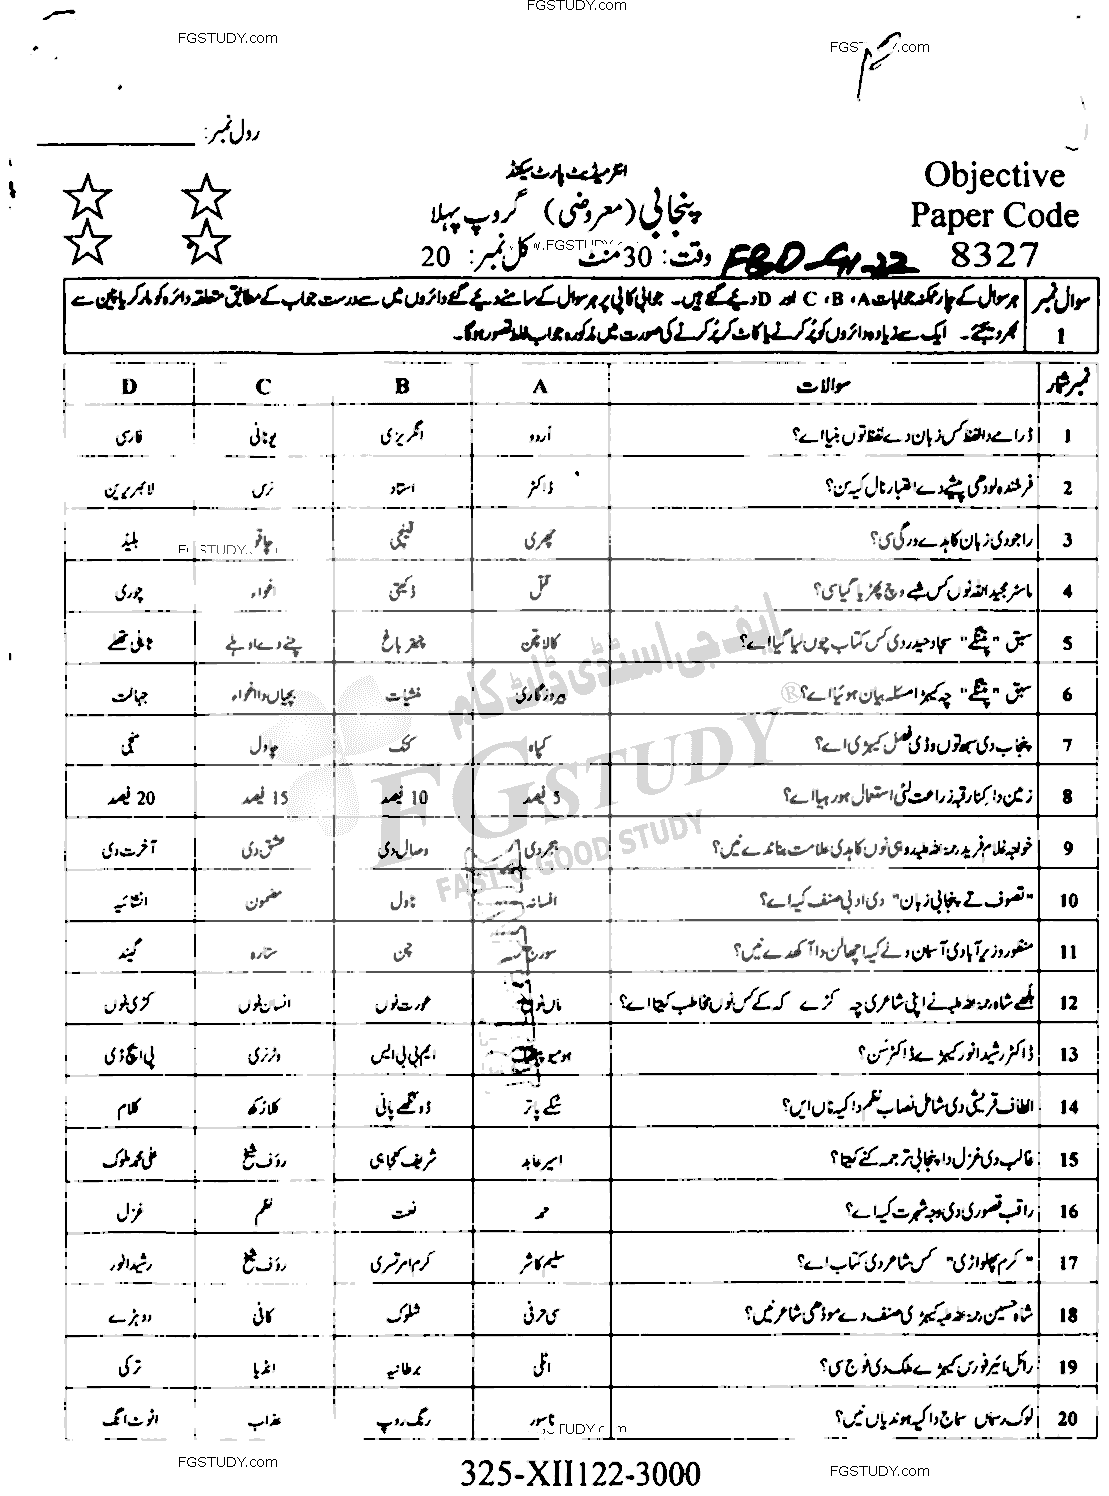 FGSTUDY.com
FGSTUDY.com
FGSTUDY.com
رول نمبر:
انٹرمیڈیٹ پارٹ سیکنڈ
Objective
پنجابی (معروضی) گروپ پہلا
Paper Code
وقت: 30 منٹ کل نمبر: 20
8327
سوال نمبر 1
ہر سوال کے چار ممکنہ جوابات A، B، C اور D دیئے گئے ہیں۔ جوابی کاپی پر ہر سوال کے سامنے دیئے گئے دائروں میں سے درست جواب کے مطابق متعلقہ دائرہ کو مارکر یا پین سے
بھر دیجئے۔ ایک سے زیادہ دائروں کو پُر کرنے یا کاٹ کر پُر کرنے کی صورت میں مذکورہ جواب غلط تصور ہوگا۔
نمبر شمار سوالات A B C D
1 ڈرامے دا لفظ کس زبان دے لفظ توں بنیا اے؟ اُردو انگریزی یونانی فارسی
2 فرخندہ لودھی پیشے دے اعتبار نال کیہ سن؟ ڈاکٹر استاد نرس لائبریرین
3 راجو دی زبان کاہدے ورگی سی؟ چھری قینچی چاقو بلیڈ
4 ماسٹر مجید اللہ نوں کس شبے وچ پھڑیا گیا سی؟ قتل ڈکیتی اغواء چوری
5 سبق "پتنگے" سجاد حیدر دی کس کتاب چوں لیا گیا اے؟ کالا پتن
6 سبق "پتنگے" چہ کیہڑا مسئلہ بیان ہوئیا اے؟ بیروزگاری منشیات بچیاں دا اغواء جہالت
7 پنجاب دی سبھ توں وڈی فصل کیہڑی اے؟ کپاہ کنک چاول مکئی
8 زمین دا کنا رقبہ زراعت لئی استعمال ہو رہیا اے؟ 5 فیصد 10 فیصد 15 فیصد 20 فیصد
9 خواجہ غلام فرید رحمۃ اللہ علیہ روہی نوں کاہدی علامت بناندے نیں؟ ہجر دی وصال دی عشق دی آخرت دی
10 "تصوف تے پنجابی زبان" دی ادبی صنف کیہ اے؟ افسانہ ناول مضمون انشائیہ
11 منظور وزیر آبادی آسمان ولے کیہ اچھالن دا آکھدے نیں؟ سورج چن ستارہ گیند
12 بلھے شاہ رحمۃ اللہ علیہ نے اپنی شاعری چہ کڑے کہہ کے کس نوں مخاطب کیتا اے؟ ماں نوں عورت نوں انسان نوں کڑی نوں
13 ڈاکٹر رشید انور کیہڑے ڈاکٹر سن؟ ہومیوپیتھک ایم بی بی ایس وٹرنری پی ایچ ڈی
14 الطاف قریشی دی شامل نصاب نظم دا کیہ ناں ایں؟ سُکے پتر ڈونگھے پانی کلارکھ کلام
15 غالب دی غزل دا پنجابی ترجمہ کنے کیتا؟ اسیر عابد شریف کنجاہی رؤف شیخ علی محمد ملوک
16 راقب قصوری دی وجہ شہرت کیہ اے؟ حمد نعت نظم غزل
17 "کرم پھلواڑی" کس شاعر دی کتاب اے؟ سلیم کاشر کرم امرتسری رؤف شیخ رشید انور
18 شاہ حسین رحمۃ اللہ علیہ کیہڑی صنف دے موڈھی شاعر نیں؟ سی حرفی شلوک کافی دوہڑے
19 رائل ائیر فورس کیہڑے ملک دی فوج سی؟ اٹلی برطانیہ انڈیا ترکی
20 لوک رسماں سماج دا کیہ ہوندیاں نیں؟ ناسور رنگ روپ عذاب انوٹ انگ
ایف جی اسٹڈی ڈاٹ کام
FGSTUDY®
FAST & GOOD STUDY
FGSTUDY.com
325-XII122-3000
FGSTUDY.com